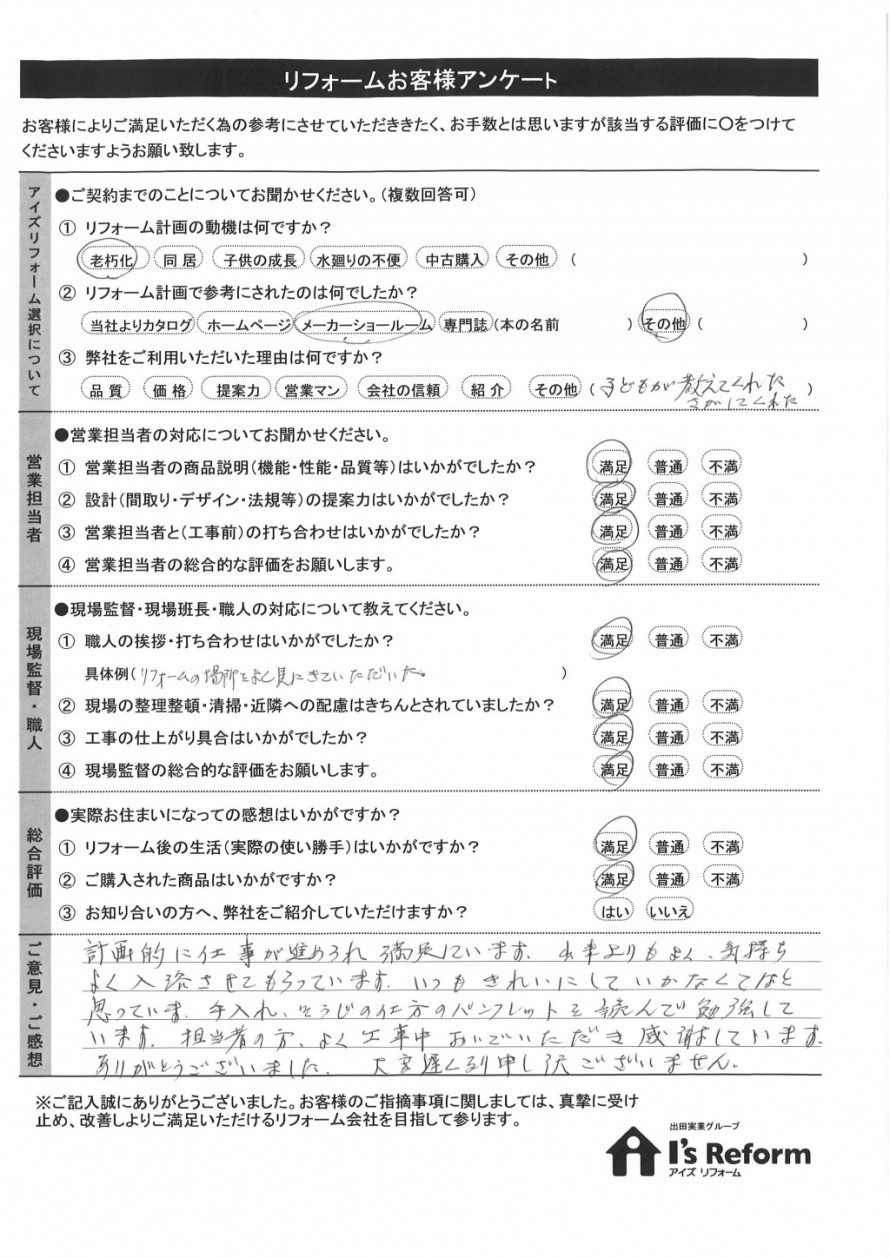 リフォームお客様アンケート
お客様によりご満足いただく為の参考にさせていただききたく、お手数とは思いますが該当する評価に〇をつけて
くださいますようお願い致します。
アイズリフォーム選択について
●ご契約までのことについてお聞かせください。(複数回答可)
① リフォーム計画の動機は何ですか?
老朽化 同居 子供の成長 水廻りの不便 中古購入 その他 ( )
② リフォーム計画で参考にされたのは何でしたか?
当社よりカタログ ホームページ メーカーショールーム 専門誌(本の名前 ) その他 ( )
③ 弊社をご利用いただいた理由は何ですか?
品質 価格 提案力 営業マン 会社の信頼 紹介 その他 (子どもが教えてくれた
さがしてくれた )
営業担当者
●営業担当者の対応についてお聞かせください。
① 営業担当者の商品説明(機能・性能・品質等)はいかがでしたか? 満足 普通 不満
② 設計(間取り・デザイン・法規等)の提案力はいかがでしたか? 満足 普通 不満
③ 営業担当者と(工事前)の打ち合わせはいかがでしたか? 満足 普通 不満
④ 営業担当者の総合的な評価をお願いします。 満足 普通 不満
現場監督・職人
●現場監督・現場班長・職人の対応について教えてください。
① 職人の挨拶・打ち合わせはいかがでしたか? 満足 普通 不満
具体例(リフォームの場所をよく見にきていただいた。 )
② 現場の整理整頓・清掃・近隣への配慮はきちんとされていましたか? 満足 普通 不満
③ 工事の仕上がり具合はいかがでしたか? 満足 普通 不満
④ 現場監督の総合的な評価をお願いします。 満足 普通 不満
総合評価
●実際お住まいになっての感想はいかがですか?
① リフォーム後の生活(実際の使い勝手)はいかがですか? 満足 普通 不満
② ご購入された商品はいかがですか? 満足 普通 不満
③ お知り合いの方へ、弊社をご紹介していただけますか? はい いいえ
ご意見・ご感想
計画的に仕事が進められ満足しています。よりもよく、気持ち
よく入浴させてもらっています。いつもきれいにしていかなくてはと
思っていま。手入れ、そうじの仕方のパンフレットを読んで勉強して
います。担当者の方、よく工事中おいでいただき感謝しています。
ありがとうございました。大変遅くなり申し訳ございません。
※ご記入誠にありがとうございました。お客様のご指摘事項に関しましては、真摯に受け
止め、改善しよりご満足いただけるリフォーム会社を目指して参ります。
出田実業グループ
I's Reform
アイズ リフォーム